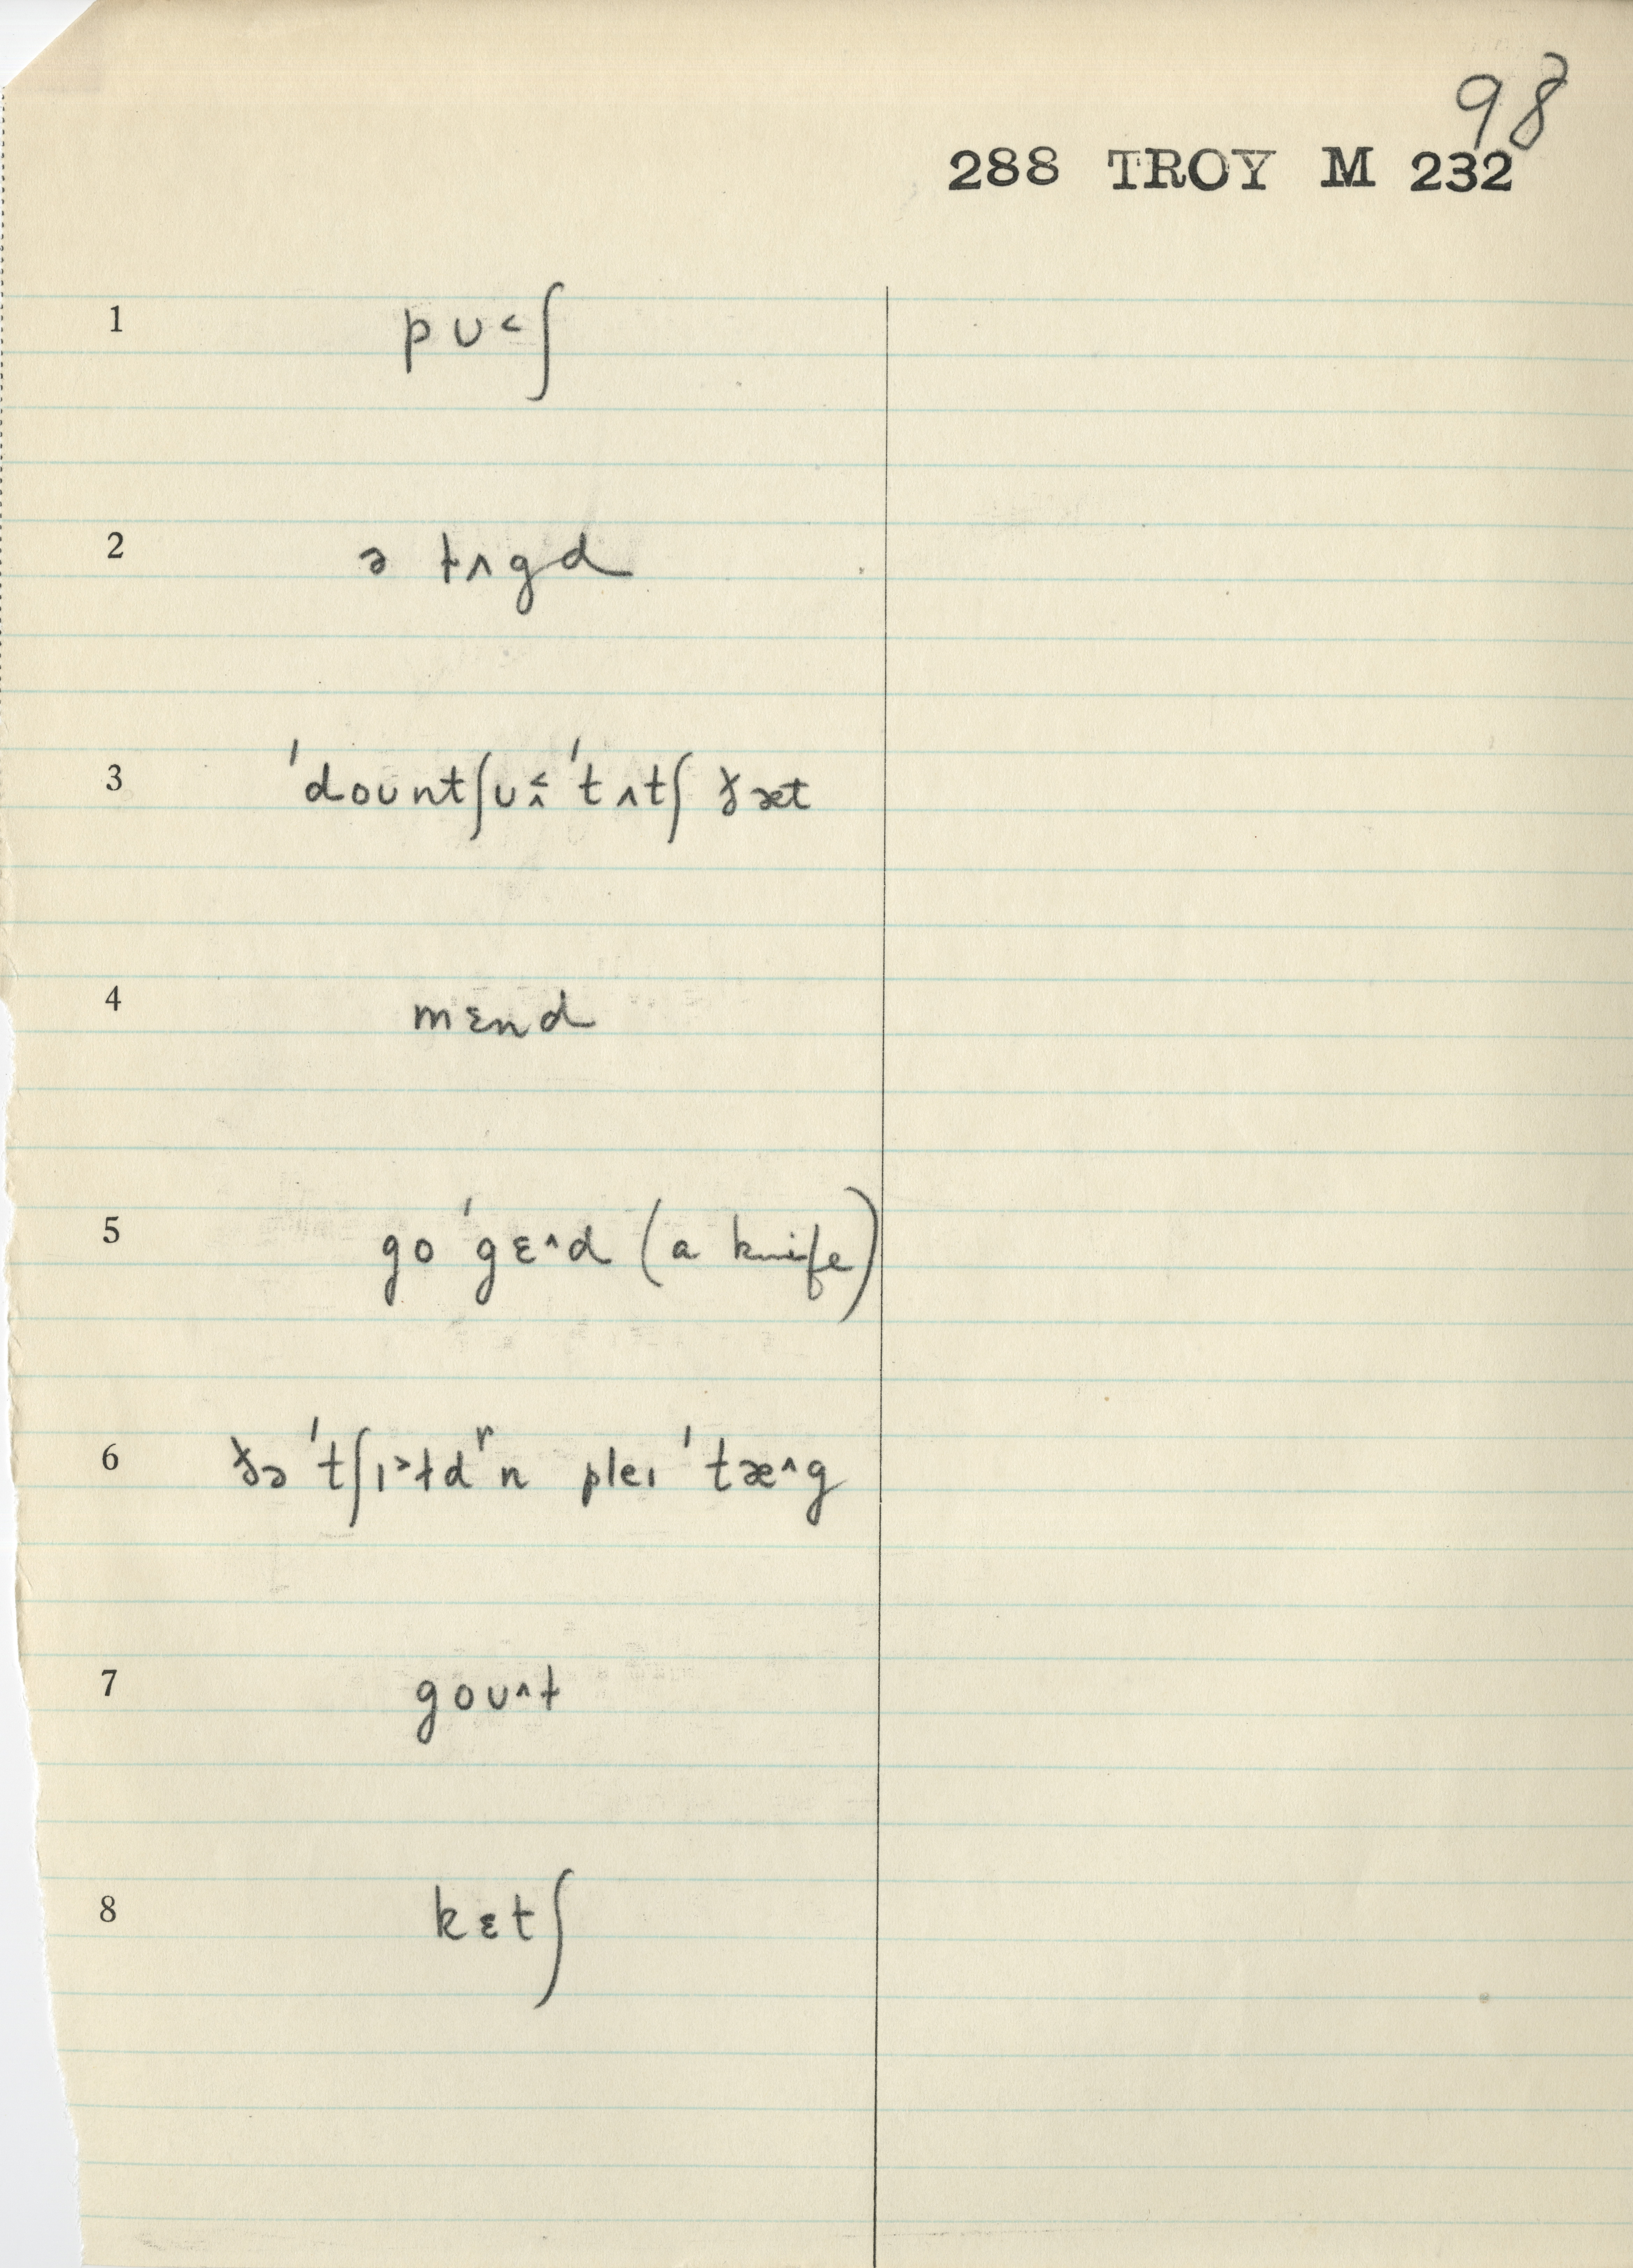 98
288 TROY M 232
1 pʊ˂ʃ
2 ə tʌgd
3 ˈdoʊntʃʊ˂̭ ˈtʌtʃ ðæt
4 mɛnd
5 go ˈgɛ^d (a knife)
6 ðə ˈtʃɪ˃ɫdʳn pleɪ ˈtæ^g
7 goʊ^t
8 kɛtʃ